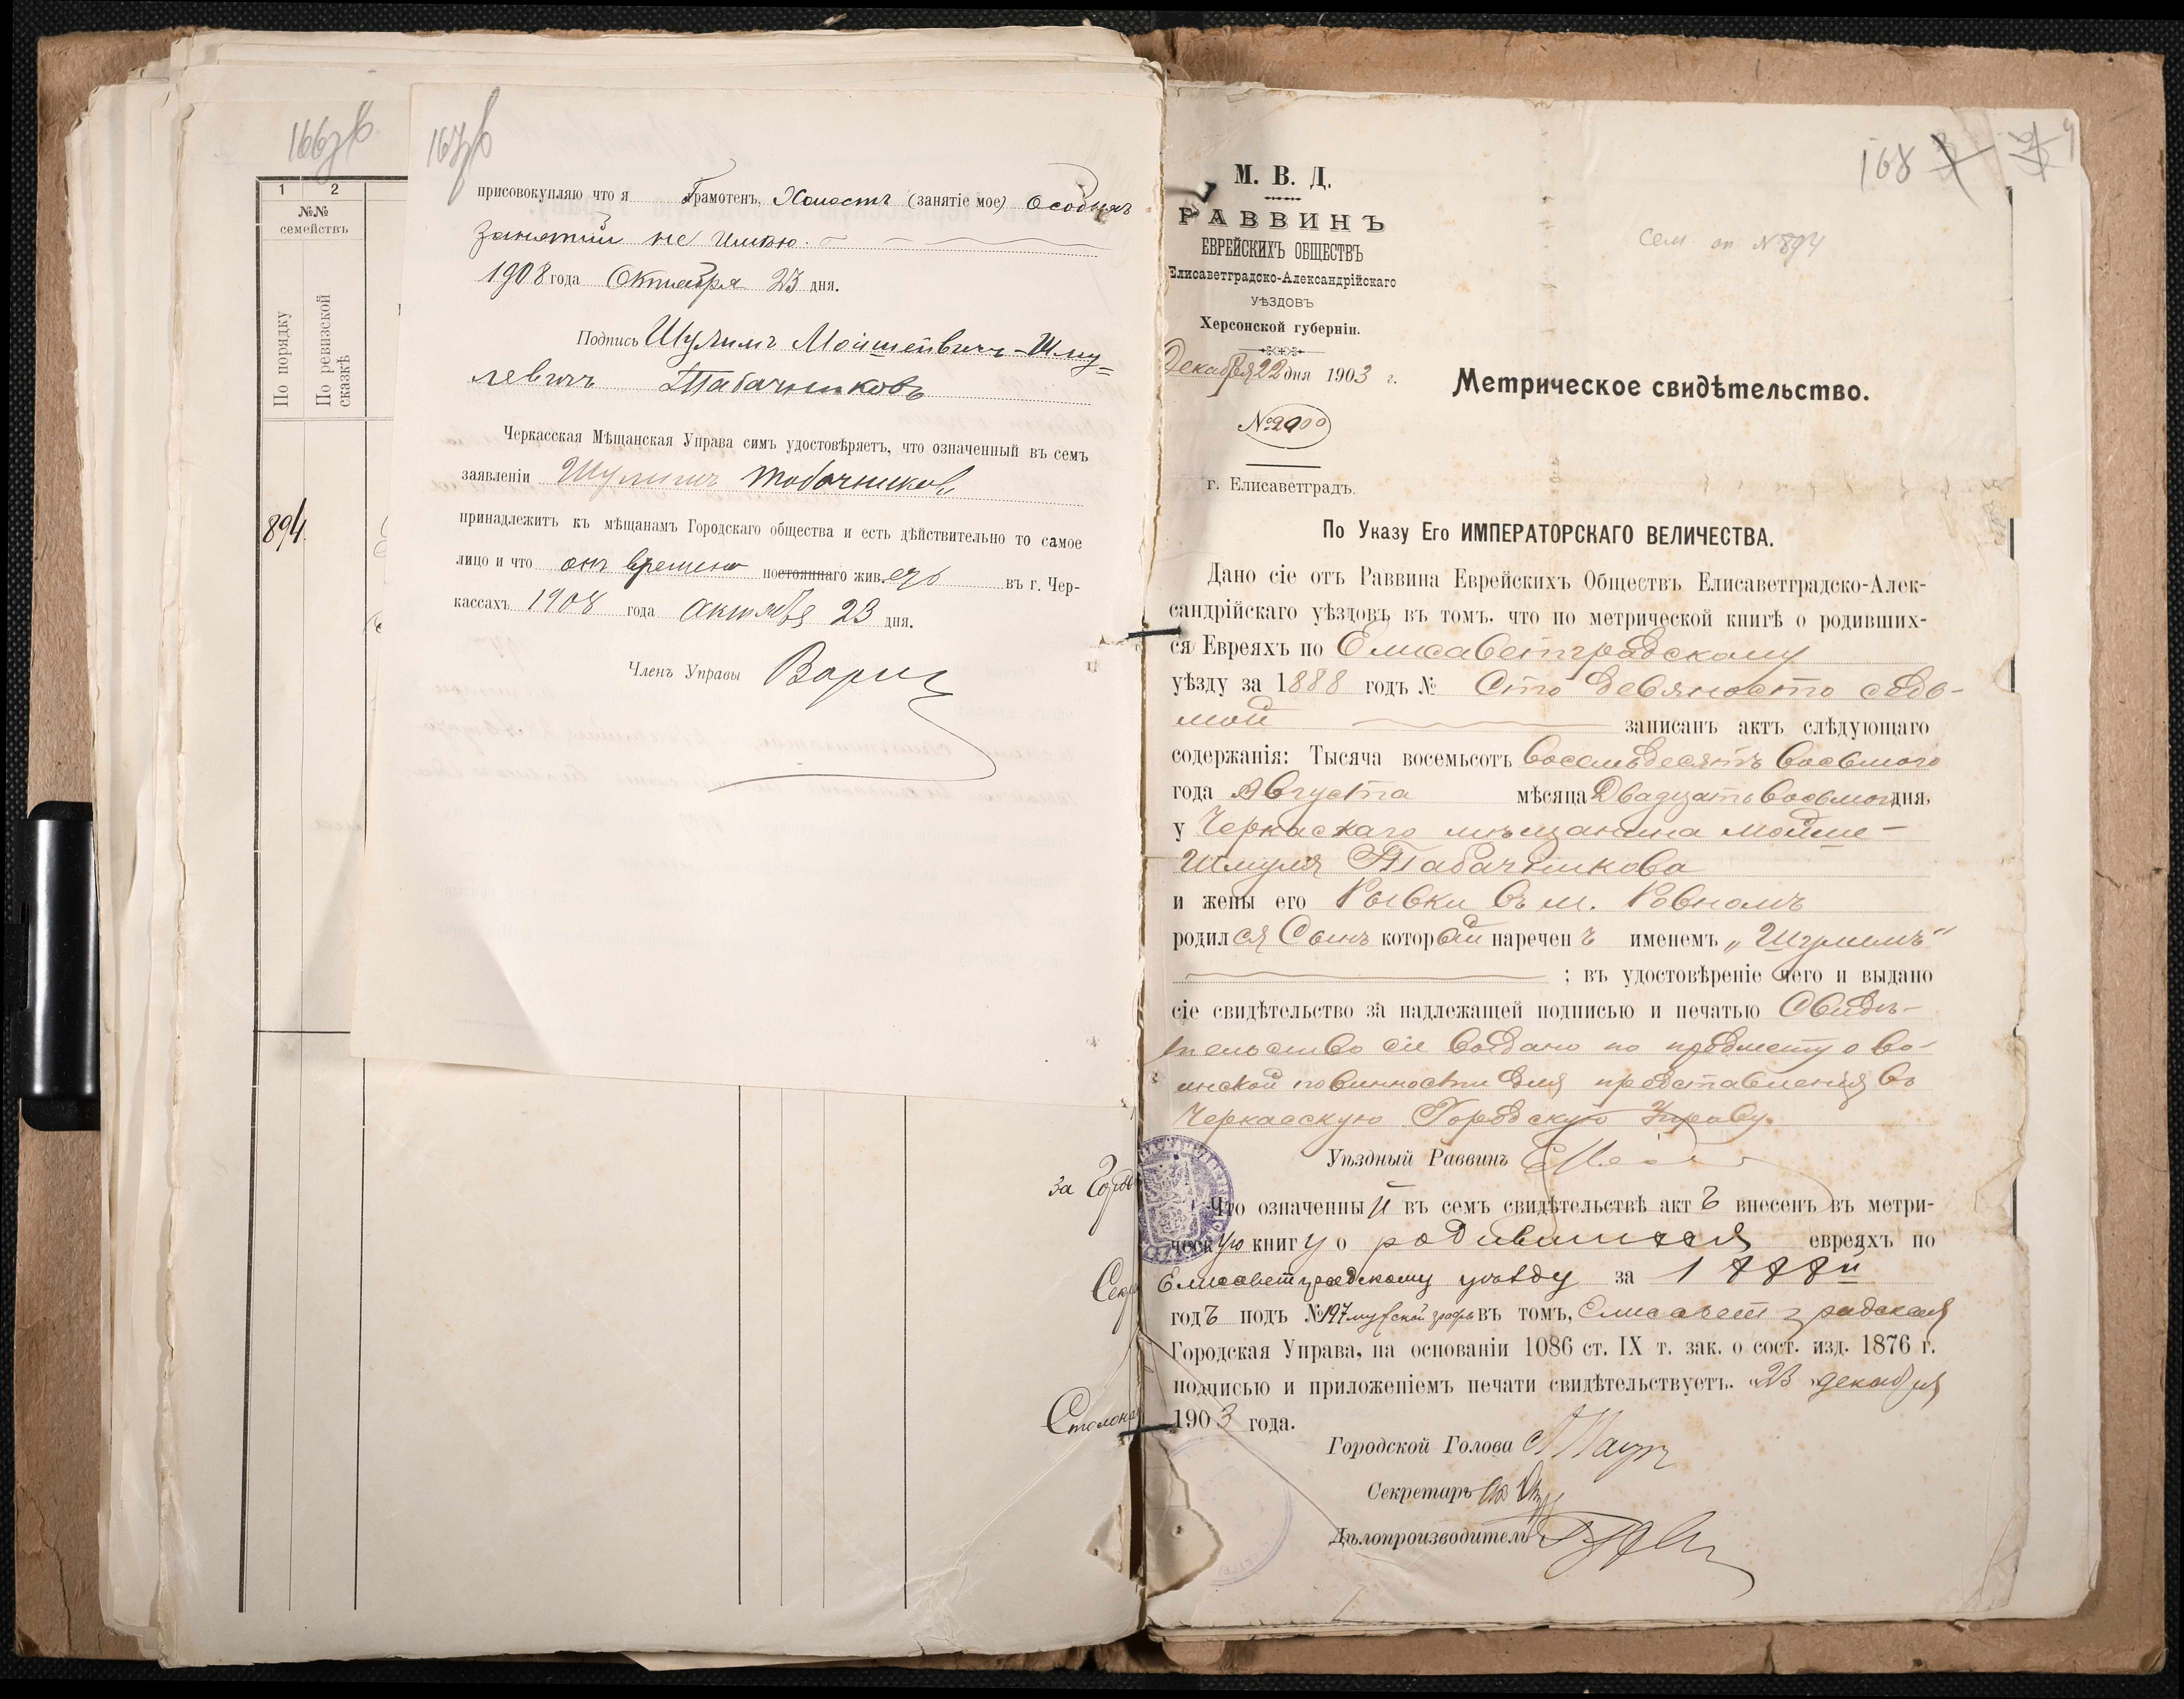 166об
1 2
№№
семействъ
По порядку
По ревизской
сказкѣ
894.
167об
присовокупляю что я Грамотенъ, Холостъ (занятіе мое) Особыхъ
занятий не имѣю.
1908 года Октября 23 дня.
Подпись Шулимъ Мойшейвичъ-Шму=
левичъ Табачниковъ
Черкасская Мѣщанская Управа симъ удостовѣряетъ, что означенный въ семъ
заявленіи Шулимъ Табачниковъ
принадлежитъ къ мѣщанамъ Городскаго общества и есть дѣйствительно то самое
лицо и что онъ времено постояннаго живетъ въ г. Чер-
кассахъ 1908 года октября 23 дня.
Членъ Управы
за Город
Секр
Столонач
168
М. В. Д.
РАВВИНЪ
ЕВРЕЙСКИХЪ ОБЩЕСТВЪ
Елисаветградско-Александрійскаго
УѢЗДОВЪ
Херсонской губерніи.
Декабря 22 дня 1903 г.
№ 2900
г. Елисаветградъ.
Сем оп №894
Метрическое свидѣтельство.
По Указу Его ИМПЕРАТОРСКАГО ВЕЛИЧЕСТВА.
Дано сіе отъ Раввина Еврейскихъ Обществъ Елисаветградско-Алек-
сандрійскаго уѣздовъ въ томъ. что по метрической книгѣ о родивших-
ся Евреяхъ по Елисаветградскому
уѣзду за 1888 годъ № Сто девяносто седь-
мой записанъ актъ слѣдующаго
содержанія: Тысяча восемьсотъ восемьдесятъ восьмого
года Августа мѣсяца Двадцать восьмого дня,
у Черкаскаго мѣщанина Мойше-
Шмуля Табачникова
и жены его Рывки въ м. Ровномъ
родился Сынъ который нареченъ именемъ „Шулимъ"
; въ удостовѣреніе чего и выдано
сіе свидѣтельство за надлежащей подписью и печатью Свидѣ-
тельство сіе выдано по предмету о во-
инской повинности для представленія въ
Черкасскую Городскую Управу.
Уѣздный Раввинъ
Что означенный въ семъ свидѣтельствѣ актъ внесенъ въ метри-
ческую книгу о родившихся евреяхъ по
Елисаветградскому уѣзду за 1888й
годъ подъ № 197 мужской графы въ томъ, Елисаветградская
Городская Управа, на основаніи 1086 ст. IX т. зак. о сост. изд. 1876 г.
подписью и приложеніемъ печати свидѣтельствуетъ. „23" декабря
1903 года.
Городской Голова
Секретарь
Дѣлопроизводитель